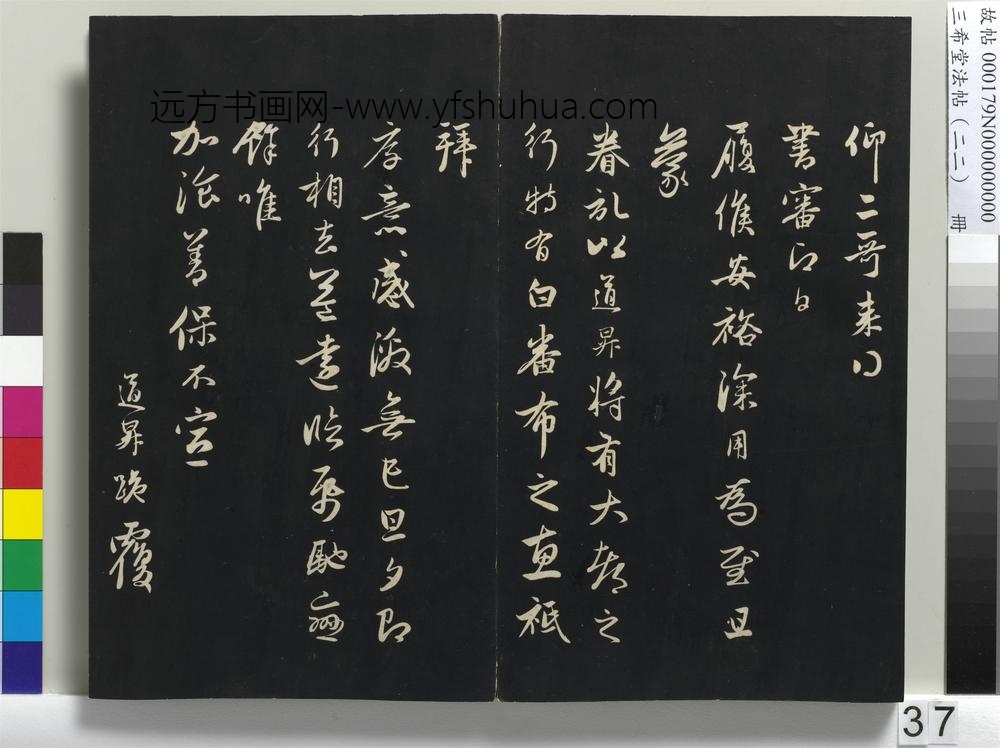 仰二哥来
書審即日
履候安裕深用為慰且
蒙
眷記以道昇將有大都之
行特有白番布之惠祗
拜
厚意感激無已旦夕即
行相去益遠臨 馳戀
餘唯
加飡善保不宣
道昇跪覆
远方书画网-www.yfshuhua.com
故帖 000179N000000000
三希堂法帖（二二） 冊
37